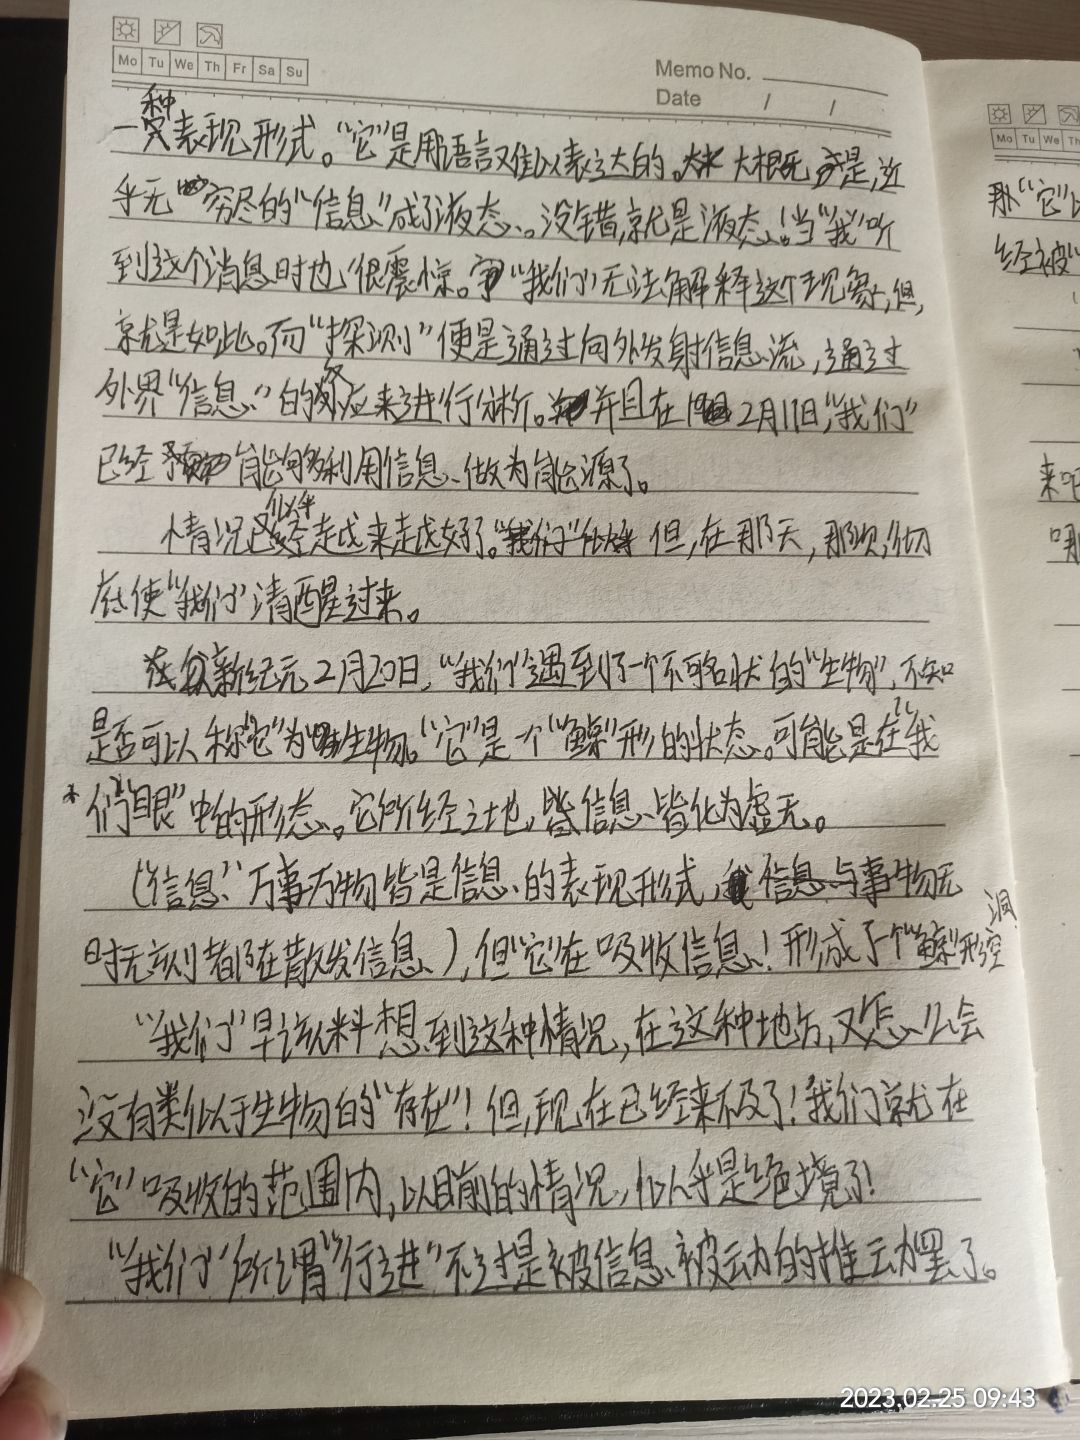 Mo Tu We Th Fr Sa Su
Memo No.
Date / /
一种表现形式。“它”是用语言又难以表达的。大根无 于是,近
乎无穷尽的“信息”成了液态。没错,就是液态!当“我”听
到这个消息时也很震惊。“我们”无法解释这个现象,但,
就是如此。而“探测”便是通过向外发射信息流,通过
外界“信息”的反应来进行分析。并且在2月11日,“我们”
已经能够利用信息做为能源了。
情况似乎走越来走越好了。但,在那天,那次,彻
底使“我们”清醒过来。
在新纪元2月20日,“我们”遇到了一个不可名状的“生物”,不知
是否可以称“它”为生物。“它”是一个“鲸”形的状态。可能是在“我
们”“眼”中的形态。它所经之地,皆信息皆化为虚无。
(“信息”万事万物皆是信息的表现形式,信息与事物无
时无刻都在散发信息),但“它”在吸收信息!形成了一个“鲸”形空洞
“我们”早该料想到这种情况,在这种地方,又怎么会
没有类似于生物的“存在”!但,现在已经来不及了!我们就在
“它”吸收的范围内,以目前的情况,似乎是绝境了!
“我们”所谓“行进”不过是被信息被动的推动罢了。
Mo Tu We Th
那“它”
经被“
来吧
2023.02.25 09:43